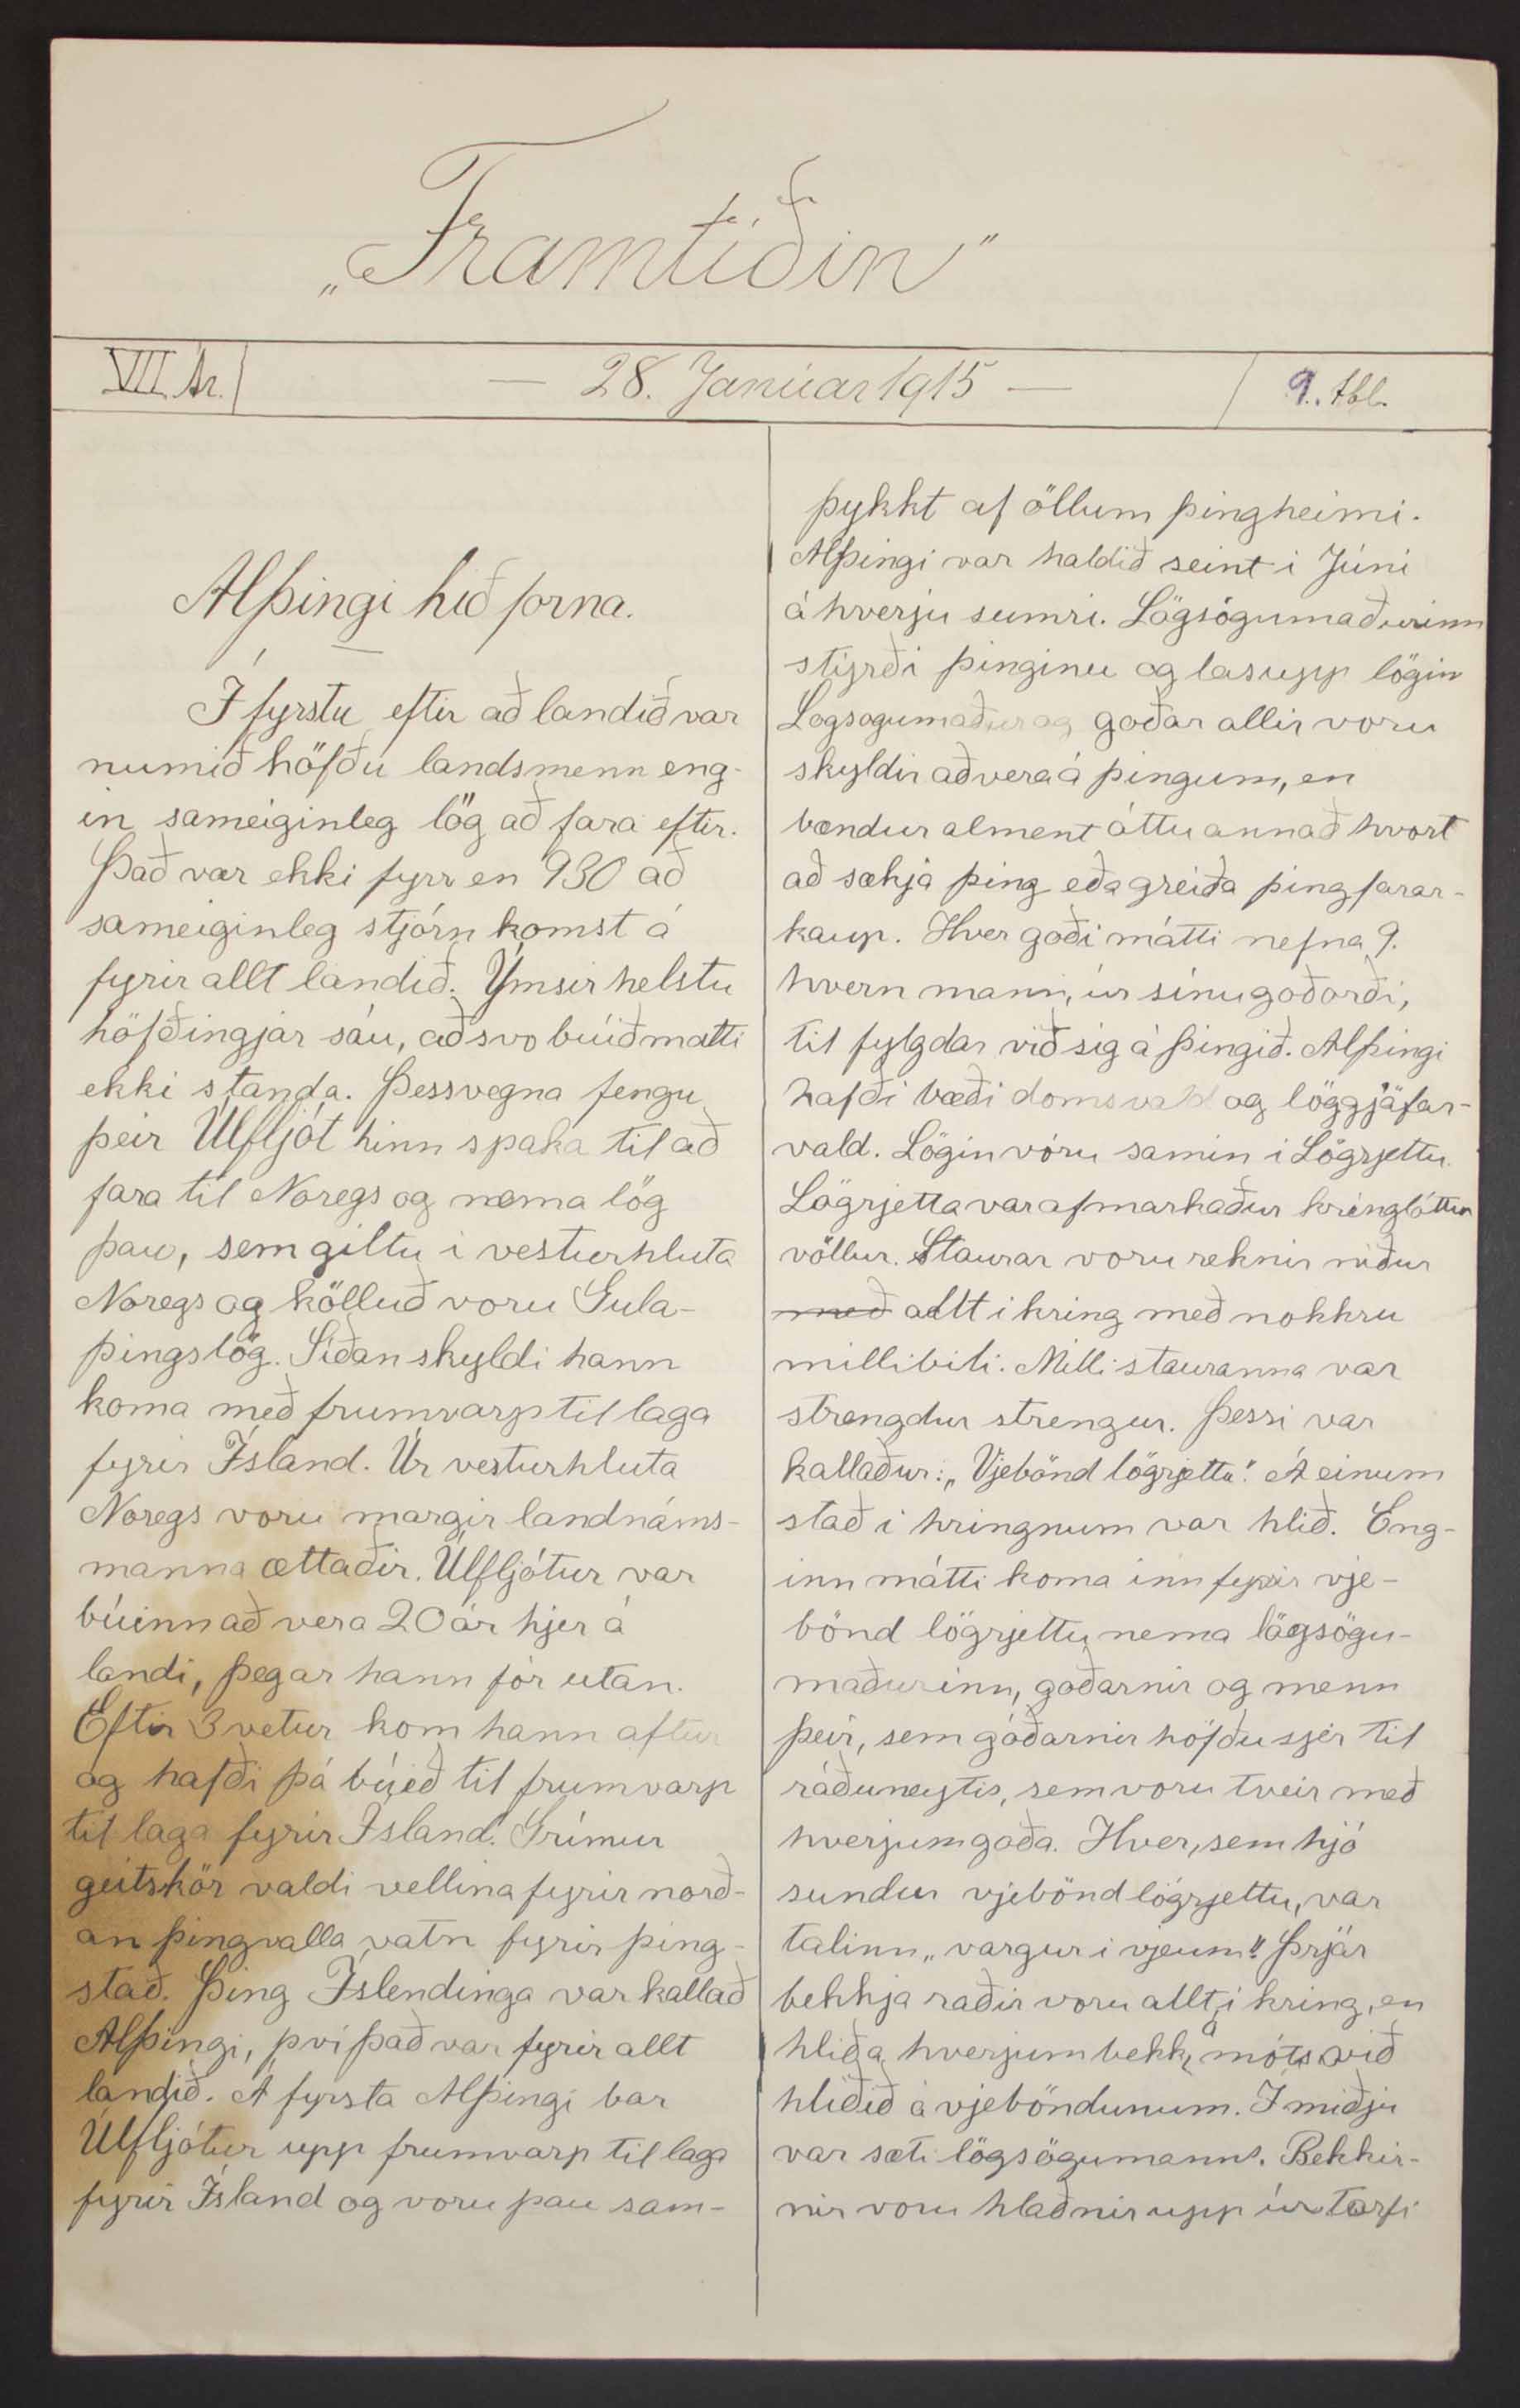 „Framtíðin"
VII. Ár.
— 28. Janúar 1915 —
9. tbl.
Alþingi hið forna.
Í fyrstu eftir að landið var
numið höfðu landsmenn eng-
in sameiginleg lög að fara eftir.
Það var ekki fyrr en 930 að
sameiginleg stjórn komst á
fyrir allt landið. Ýmsir helstu
höfðingjar sáu, að svo búið mátti
ekki standa. Þessvegna fengu
þeir Úlfljót hinn spaka til að
fara til Noregs og nema lög
þau, sem giltu i vesturhluta
Noregs og kölluð voru Gula-
þingslög. Síðan skyldi hann
koma með frumvarp til laga
fyrir Ísland. Úr vesturhluta
Noregs voru margir landnáms-
manna ættaðir. Úlfljótur var
búinn að vera 20 ár hjer á
landi, þegar hann fór utan.
Eftir 3 vetur kom hann aftur
og hafði þá búið til frumvarp
til laga fyrir Ísland. Grímur
geitskör valdi vellina fyrir norð-
an þingvalla vatn fyrir þing-
stað. Þing Íslendinga var kallað
Alþingi, því það var fyrir allt
landið. Á fyrsta Alþingi bar
Úlfljótur upp frumvarp til laga
fyrir Ísland og voru þau sam-
þykkt af öllum þingheimi.
Alþingi var haldið seint i Júní
á hverju sumri. Lögsögumaðurinn
stýrði þinginu og las upp lögin
Logsogumaður og goðar allir voru
skyldir að vera á þingum, en
bændur alment áttu annað hvort
að sækja þing eða greiða þingfarar-
kaup. Hver goði mátti nefna 9.
hvern mann, úr sínu goðorði,
til fylgdar við sig á þingið. Alþingi
hafði bæði domsvald og löggjäfar-
vald. Lögin vóru samin i Lögrjettu.
Lögrjetta var afmarkaður kringlóttur
völlur. Staurar voru reknir niður
með allt i kring með nokkru
millibili. Milli stauranna var
strengdur strengur. Þessi var
kallaður: „Vjebönd lögrjettu". Á einum
stað i hringnum var hlið. Eng-
inn mátti koma inn fyrir vje-
bönd lögrjettu nema lögsögu-
maðurinn, goðarnir og menn
þeir, sem góðarnir höfðu sjer til
ráðuneytis, sem voru tveir með
hverjum goða. Hver, sem hjó
sundur vjebönd lögrjettu, var
talinn „vargur i vjeum". Þrjár
bekkja raðir voru allt i kring, en
hlið á hverjum bekk, á móts við
hliðið á vjeböndunum. Í miðju
var sæti lögsögumanns. Bekkir-
nir voru hlaðnir upp úr torfi